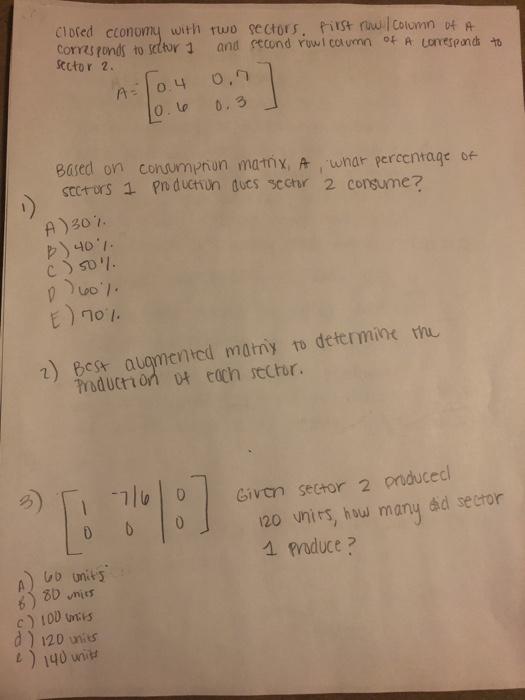 closed economy with two sectors. first row/column of A
corresponds to sector 1 and second row/column of A corresponds to
sector 2.
A = [0.4 0.7
0.6 0.3]
Based on consumption matrix, A, what percentage of
sectors 1 production does sector 2 consume?
1)
A) 30%
B) 40%.
C) 50%.
D) 60%.
E) 70%.
2) Best augmented matrix to determine the
production of each sector.
3) [1 -7/6 | 0
0 0 | 0]
Given sector 2 produced
120 units, how many did sector
1 produce?
A) 60 units
B) 80 units
c) 100 units
d) 120 units
e) 140 units